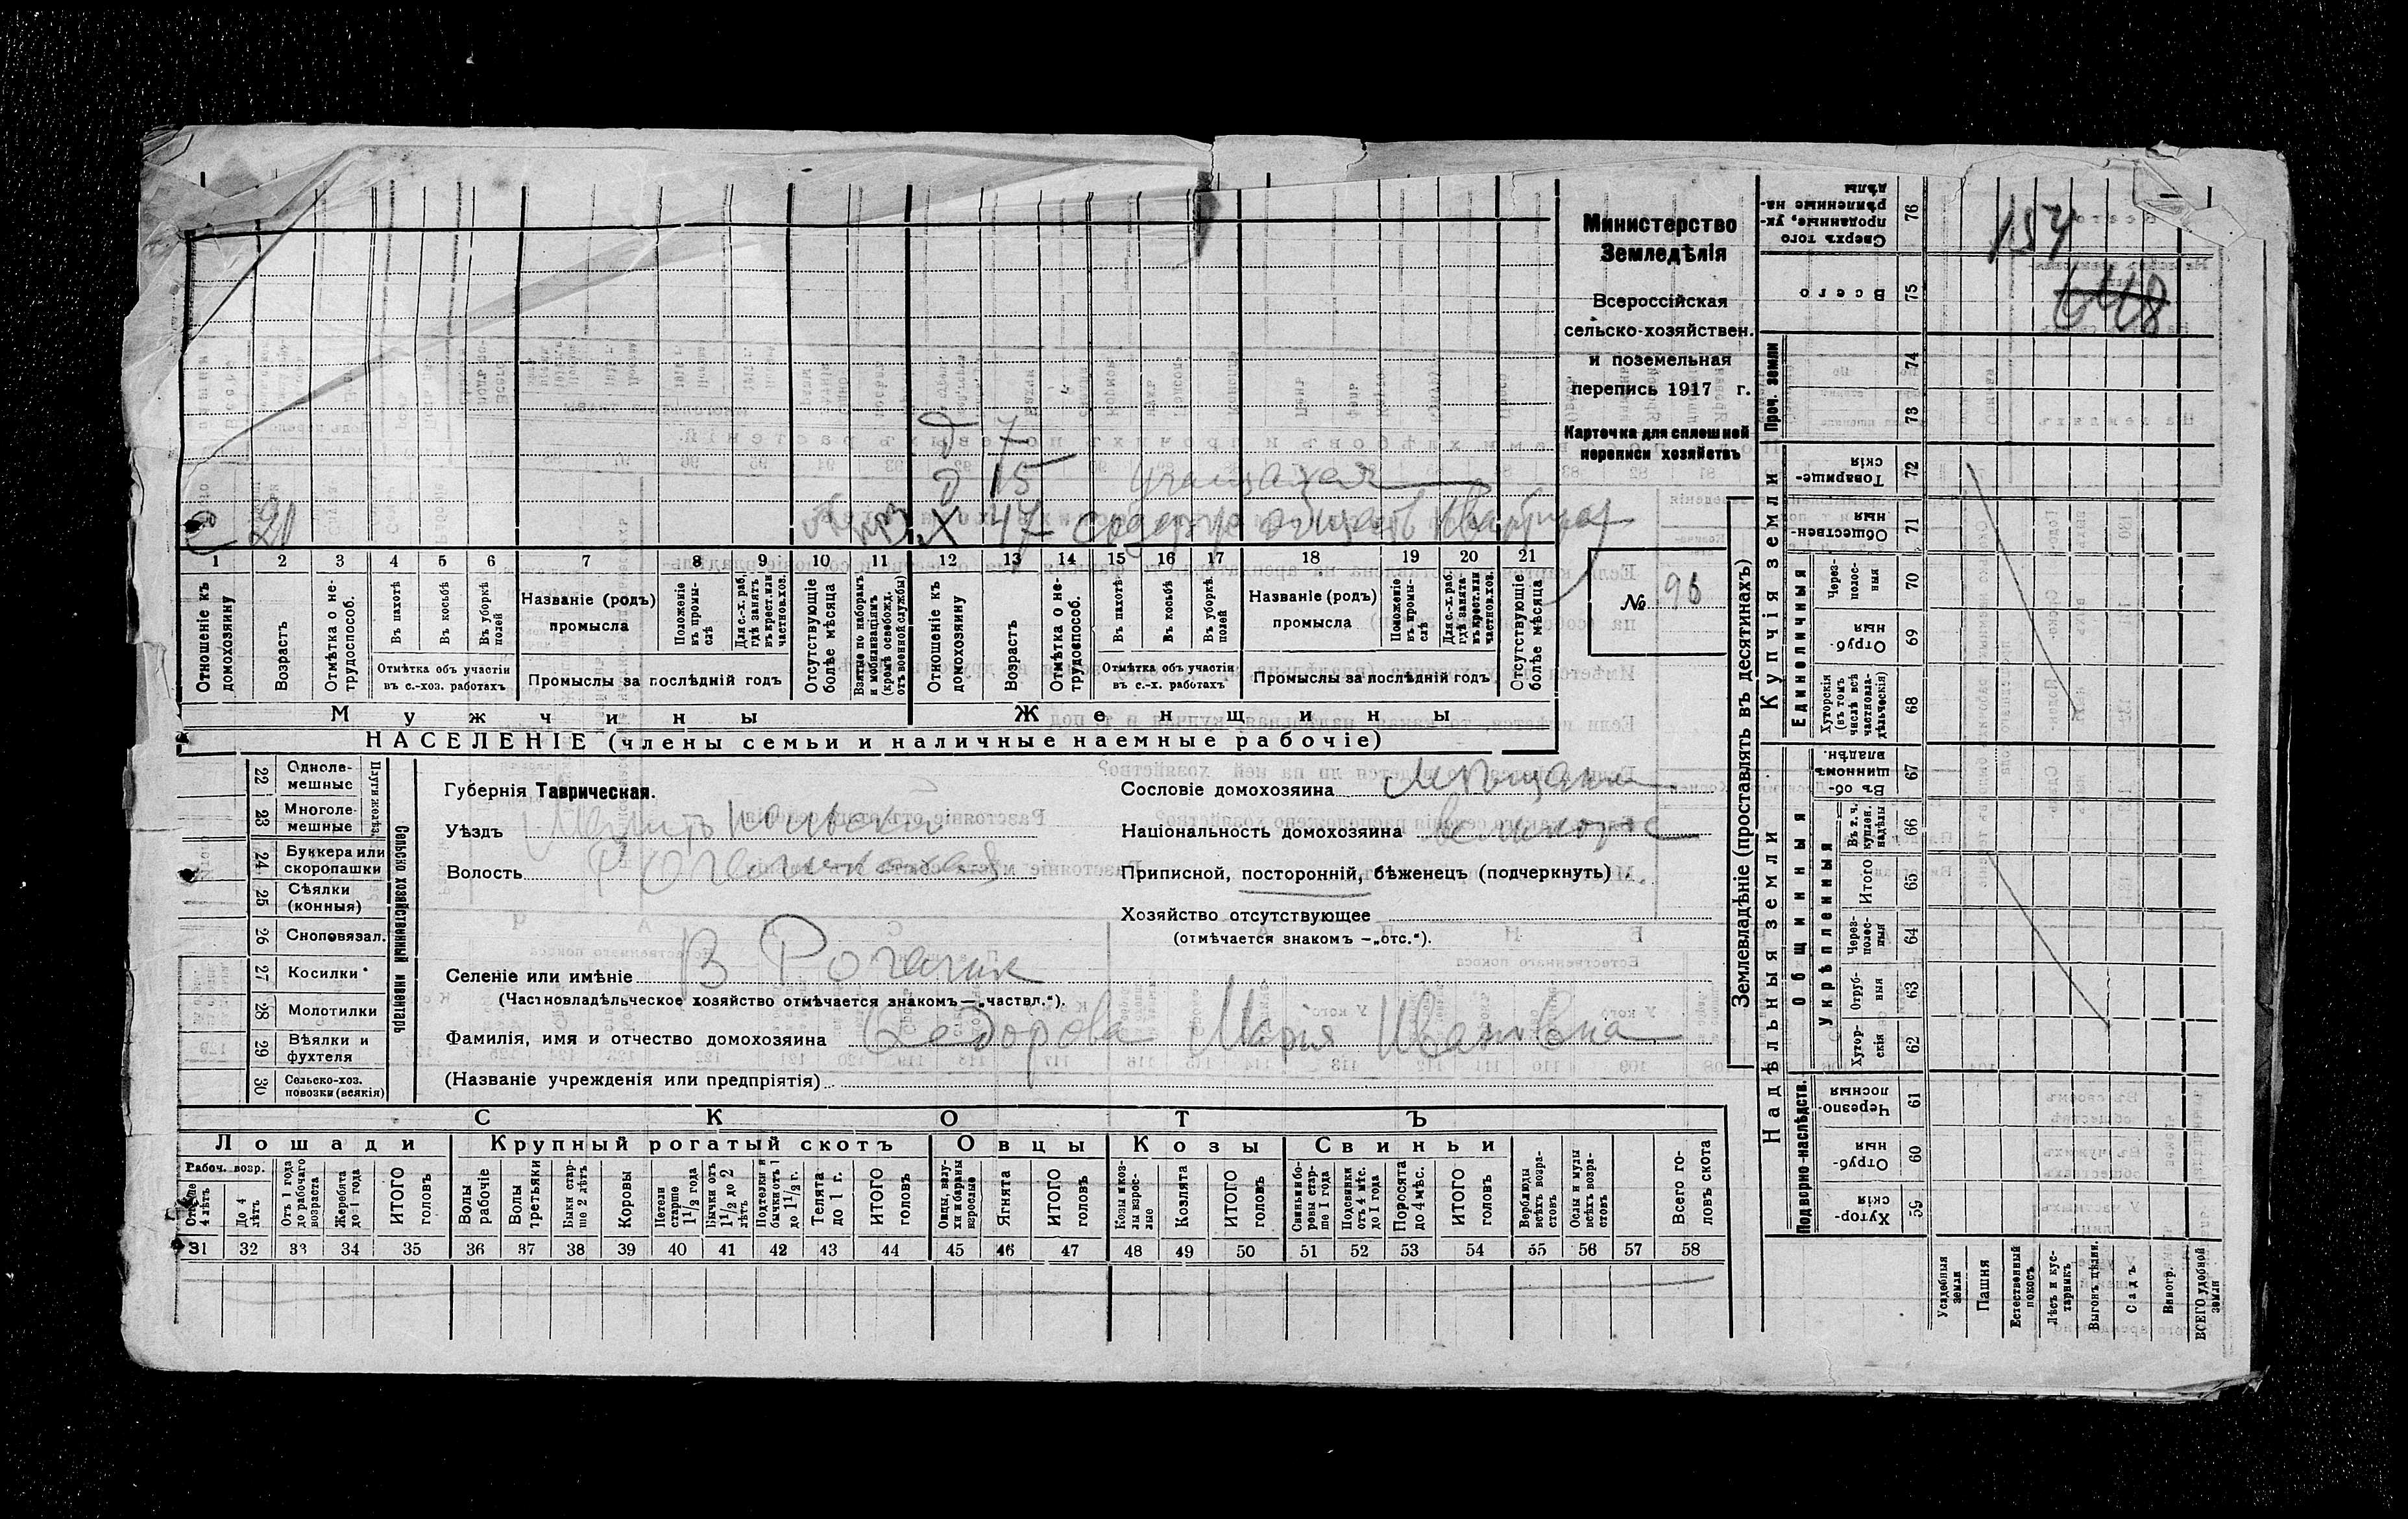 Министерство
Земледѣлія
Всероссійская
сельско-хозяйствен.
и поземельная
перепись 1917 г.
Карточка для сплошной
переписи хозяйствъ
№ 96
154
648
д 7
д 15 учащаяся
с 21
х 47
1 2 3 4 5 6 7 8 9 10 11 12 13 14 15 16 17 18 19 20 21
Отношеніе къ домохозяину
Возрастъ
Отмѣтка о не-трудоспособ.
Въ пахотѣ
Въ косьбѣ
Въ уборкѣ полей
Отмѣтка объ участіи
въ с.-хоз. работахъ
Названіе (родъ)
промысла
Положеніе въ промы-слѣ
Для с.-х. раб. гдѣ занятъ въ крест. или частнов. хоз.
Промыслы за послѣдній годъ
Отсутствующіе болѣе мѣсяца
Взятые по наборамъ и мобилизаціямъ (кромѣ освобожд. отъ военной службы)
Отношеніе къ домохозяину
Возрастъ
Отмѣтка о не-трудоспособ.
Въ пахотѣ
Въ косьбѣ
Въ уборкѣ полей
Отмѣтка объ участіи
въ с.-х. работахъ
Названіе (родъ)
промысла
Положеніе въ промы-слѣ
Для с.-х. раб. гдѣ занята-въ крест. или частнов. хоз.
Промыслы за послѣдній годъ
Отсутствующіе болѣе мѣсяца
Мужчины
Женщины
НАСЕЛЕНІЕ (члены семьи и наличные наемные рабочіе)
Сельско хозяйственный инвентарь
Плуги желѣз.
22 Одноле-мешные
23 Многоле-мешные
24 Буккера или скоропашки
25 Сѣялки (конныя)
26 Сноповязал.
27 Косилки
28 Молотилки
29 Вѣялки и фухтеля
30 Сельско-хоз. повозки (всякія)
Губернія Таврическая.
Уѣздъ Мелитопольскій
Волость Рогачикская
Селеніе или имѣніе В Рогачик
(Частновладѣльческое хозяйство отмѣчается знакомъ—„частвл.“).
Фамилія, имя и отчество домохозяина Седорова Мария Ивановна
(Названіе учрежденія или предпріятія)
Сословіе домохозяина Мѣщанка
Національность домохозяина великорос
Приписной, посторонній, бѣженец (подчеркнуть)
Хозяйство отсутствующее
(отмѣчается знакомъ —„отс.“).
СКОТЪ
Лошади
Крупный рогатый скотъ
Овцы
Козы
Свиньи
Рабоч. возр.
Отъ 4 лѣтъ
До 4 лѣтъ
Отъ 1 года до рабочаго возраста
Жеребята до 1 года
ИТОГО головъ
Волы рабочіе
Волы третьяки
Быки стар-ше 2 лѣтъ
Коровы
Нетели старше 1½ года
Бычки отъ 1½ до 2 лѣтъ
Подтелки и бычки отъ 1 до 1½ г.
Телята до 1 г.
ИТОГО головъ
Овцы, валу-хи и бараны взрослые
Ягнята
ИТОГО головъ
Козы и коз-лы взрос-лые
Козлята
ИТОГО головъ
Свиньи и бо-ровы стар-ше 1 года
Подсвинки отъ 4 мѣс. до 1 года
Поросята до 4 мѣс.
ИТОГО головъ
Верблюды всѣхъ возра-стовъ
Ослы и мулы всѣхъ возра-стовъ
Всего го-ловъ скота
31 32 33 34 35 36 37 38 39 40 41 42 43 44 45 46 47 48 49 50 51 52 53 54 55 56 57 58
Землевладѣніе (проставлять въ десятинахъ)
Надѣльныя земли
Купчія земли
Проч. земли
Подворно-наслѣдств.
Общинныя
Укрѣпленныя
Единоличныя
59 Хутор-скія
60 Отруб-ныя
61 Черезпо-лосныя
62 Хутор-скія
63 Отруб-ныя
64 Через-полос-ныя
65 Итого
66 Въ т. ч. куплен. надѣлы
67 Въ об-щинномъ владѣн.
68 Хуторскія (въ томъ числѣ всѣ частновла-дѣльческія)
69 Отруб-ныя
70 Через-полос-ныя
71 Обществен-ныя
72 Товарище-скія
73
74
75 Всего
76 Сверхъ того проданные, ук-рѣпленные на-дѣлы
Усадебныя земли
Пашня
Естественный покосъ
Лѣсъ и кус-тарникъ
Выгонъ цѣлин.
Садъ
Виногр.
ВСЕГО удобной земли